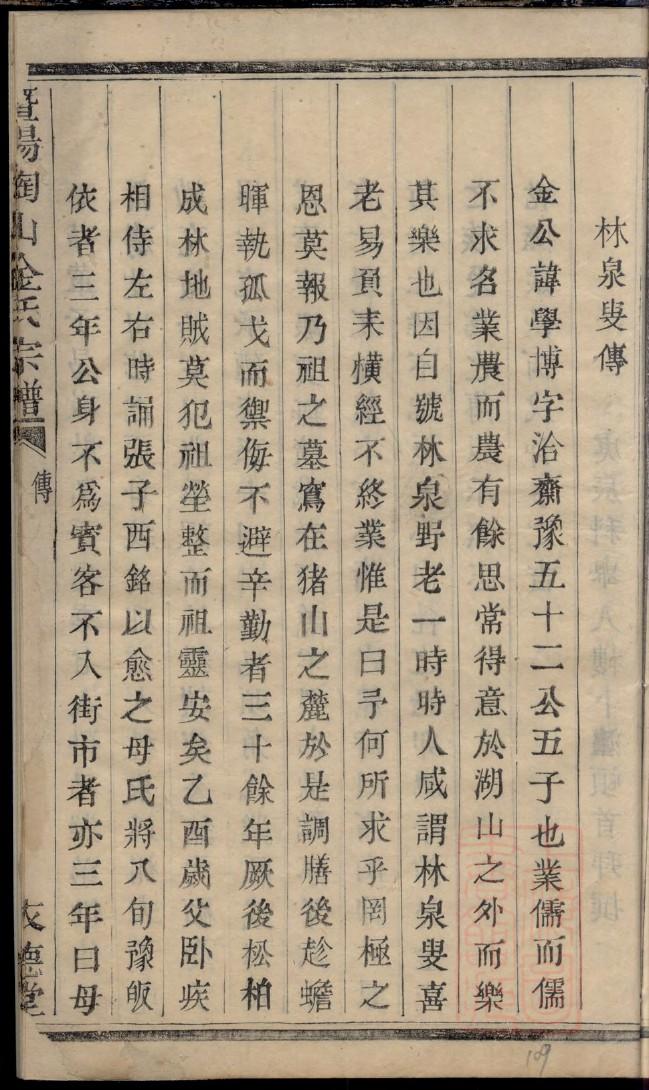 林泉叟傳
金公諱學博字洽齋豫五十二公五子也業儒而儒
不求名業農而農有餘思常得意於湖山之外而樂
其樂也因自號林泉野老一時時人咸謂林泉叟喜
老易負耒橫經不終業惟是曰予何所求乎罔極之
恩莫報乃祖之墓窵在猪山之麓於是調膳後趁蟾
暉執孤戈而禦侮不避辛勤者三十餘年厥後松柏
成林地賊莫犯祖塋整而祖靈安矣乙酉歲父卧疾
相侍左右時誦張子西銘以愈之母氏將八旬豫皈
依者三年公身不爲賓客不入街市者亦三年曰母
暨陽陶山金氏宗譜
傳
友德堂
109